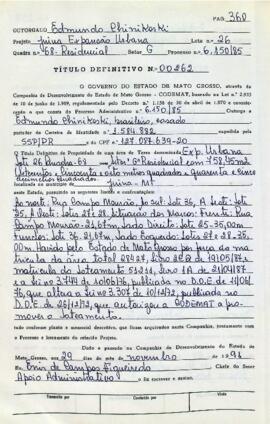 Pag. 360
OUTORGADO Edmundo Chinikoski
PROJETO Juina Expansão Urbana Lote 26
Quadra nº 68-Residencial Setor G Processo nº 6.150/85
TÍTULO DEFINITIVO Nº 00262
O GOVERNO DO ESTADO DE MATO GROSSO, através da
Companhia de Desenvolvimento do Estado de Mato Grosso - CODEMAT, baseado na Lei nº 2.935
e considerando
o que consta do Processo Administrativo nº 6.150/85 Outorga a
Edmundo Chinikoski, brasileiro, casado
portador da Carteira de Identidade nº 1.584.882 expedida pela
SSP/PR e do CPF nº 127.087.639-20
o Título Definitivo de Propriedade de uma área denominada Exp. Urbana
Lote 26 Quadra-68 Setor G Residencial com 758,45m2
Setecentos e Cinquenta e oito metros quadrados e quarenta e cinco
decímetros quadrados
localizada no município de Juina - MT
Ao norte: Rua Campo Mourão, Ao sul: Lote 36, A Leste: Lote
25, A Oeste: Lotes 27 e 28. Situação dos Marcos: Frente: Rua
Campo Mourão, 21,67m, Lado Direito: Lote 25-35,00m
Fundos: Lote 36, 21,67m, Lado Esquerdo: Lotes 27 e 28-35,
00m. Havido pelo Estado de Mato Grosso por força da
matrícula da área total
matrícula do loteamento
e a Lei nº 3.744 de 10/06/76, publicada no D.O.E de 11/06/
76, que altera a Lei nº 3.307 de 18/12/72, publicada no
D.O.E de 26/12/72, que autorizou a CODEMAT a pro-
mover o Loteamento.
tudo conforme planta e memorial descritivo, que ficam arquivados nesta Companhia, juntamente com
o Processo e Livramento do referido Projeto.
Dado e passado na Companhia de Desenvolvimento do Estado de
Mato Grosso, em 29 dias do mês de novembro de 1994
Eu Enir de Campos Figueiredo Chefe do Setor
Apoio Administrativo o fiz escrever e assino.
Transcrito por Conferido por Visto